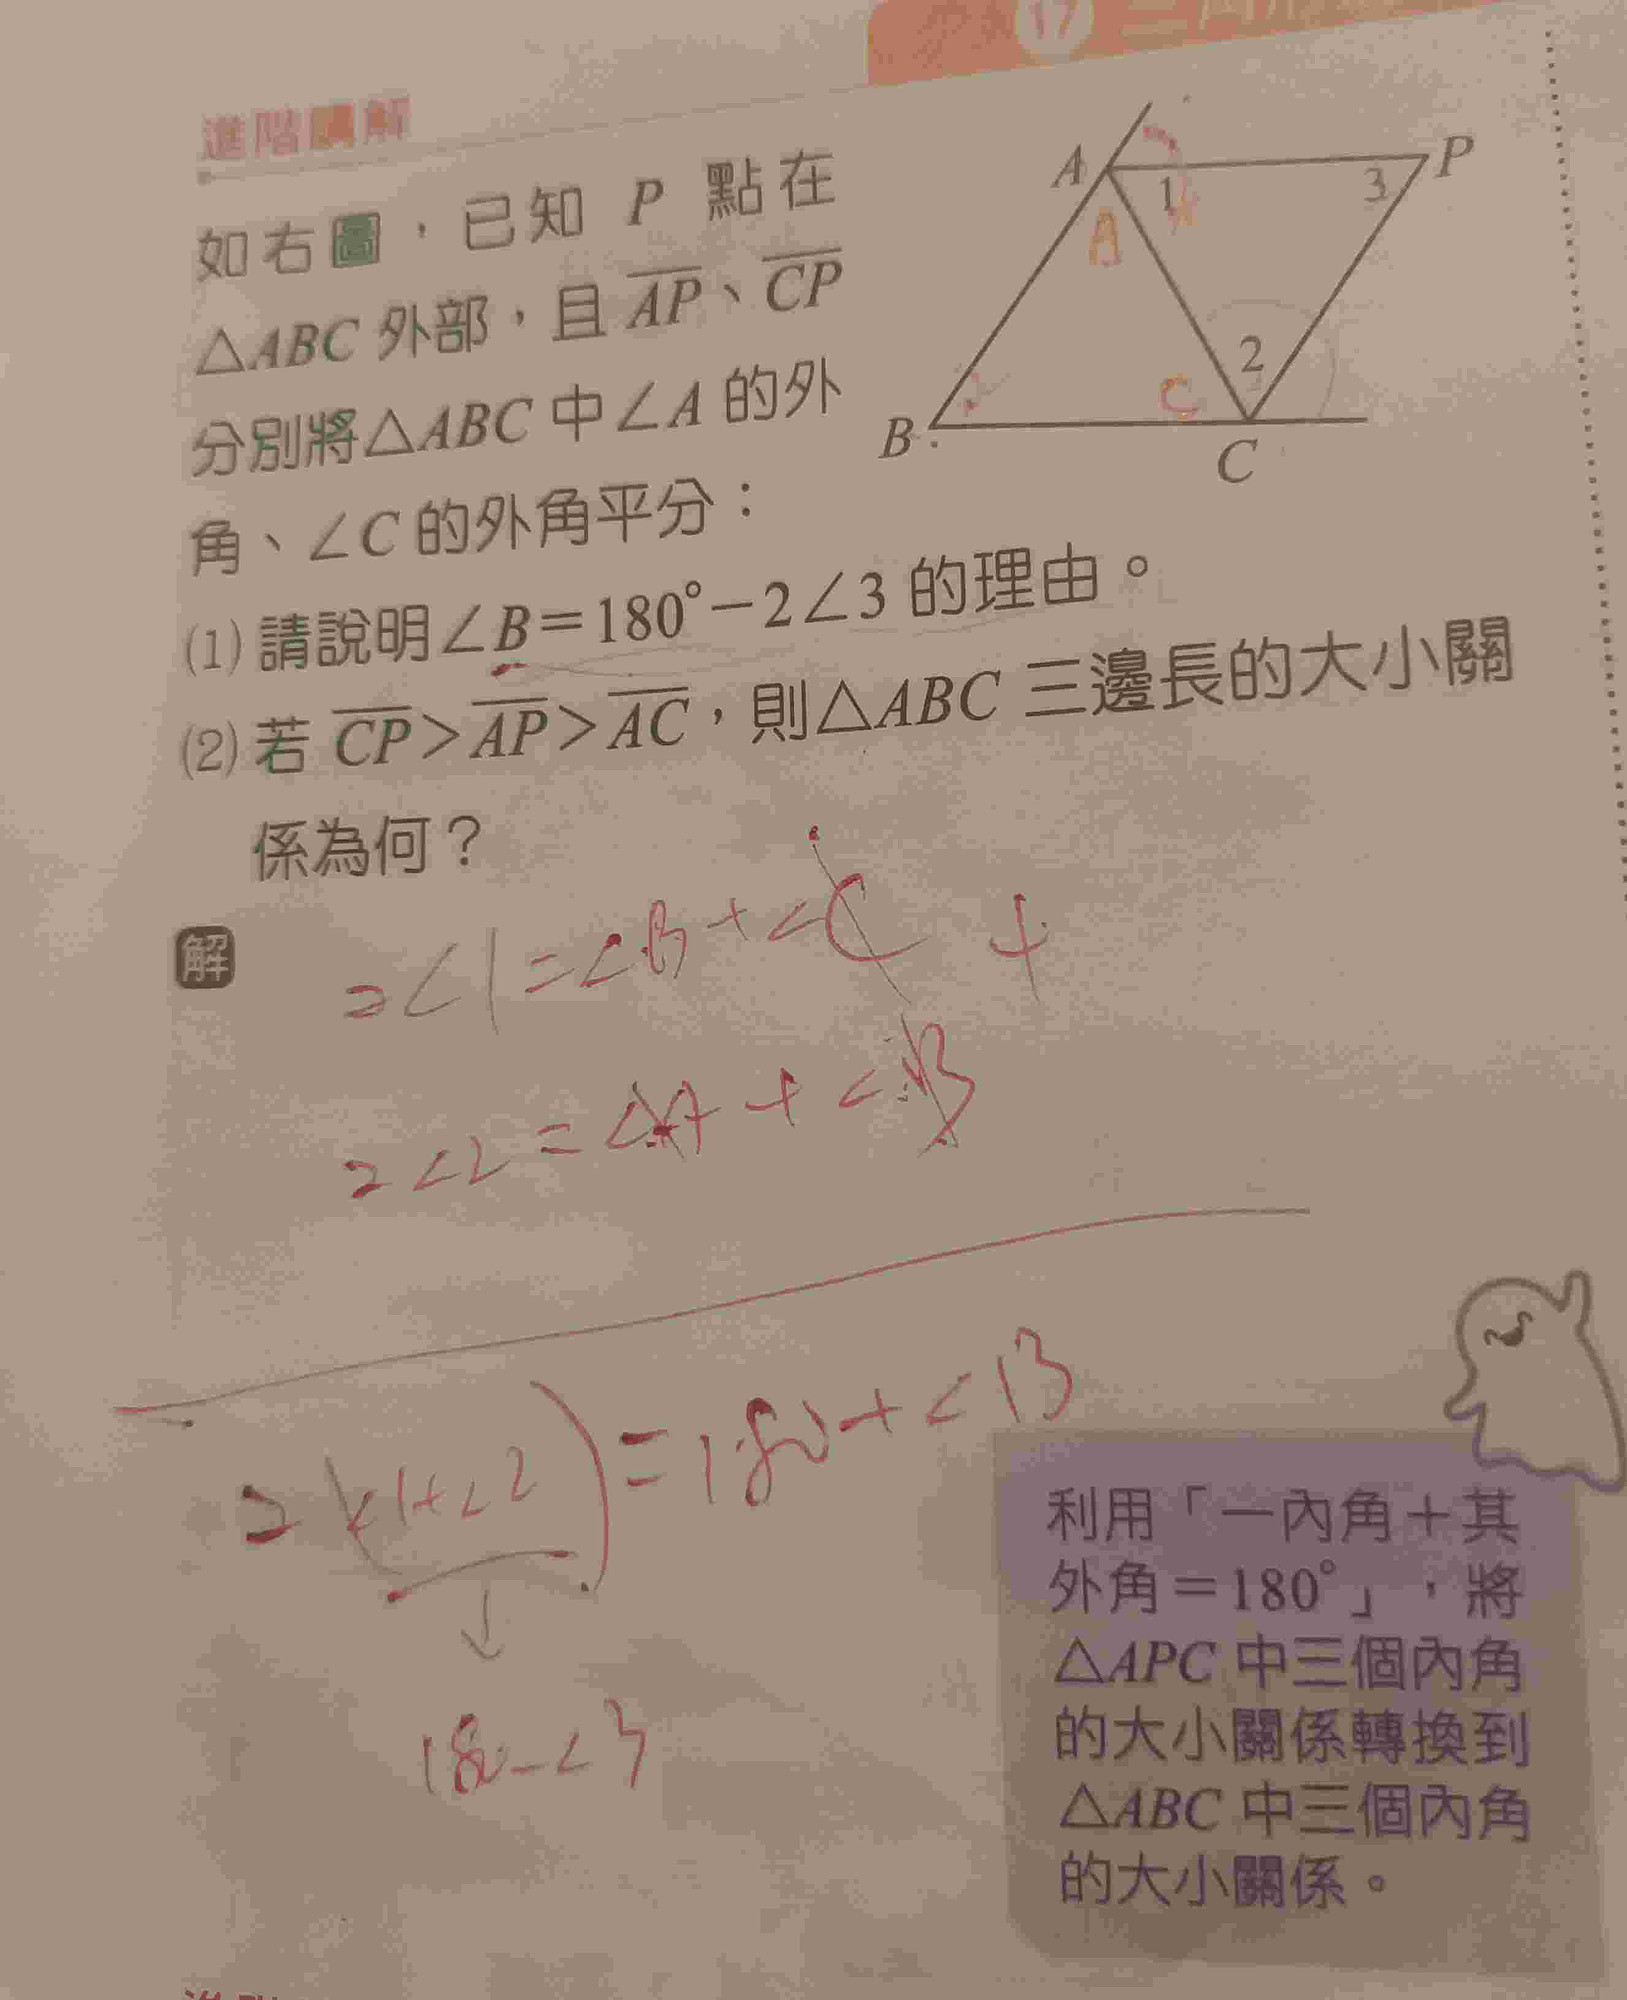 17
進階講解
如右圖，已知 P 點在
△ABC 外部，且 AP、CP
分別將△ABC 中∠A 的外
角、∠C 的外角平分：
(1) 請說明∠B＝180°－2∠3 的理由。
(2) 若 CP＞AP＞AC，則△ABC 三邊長的大小關
係為何？
A
P
1
3
A
2
C
B
C
解
2∠1=∠B+∠C +
2∠2=∠A+∠B
2(∠1+∠2)=180+∠B
↓
180-∠3
利用「一內角＋其
外角＝180°」，將
△APC 中三個內角
的大小關係轉換到
△ABC 中三個內角
的大小關係。